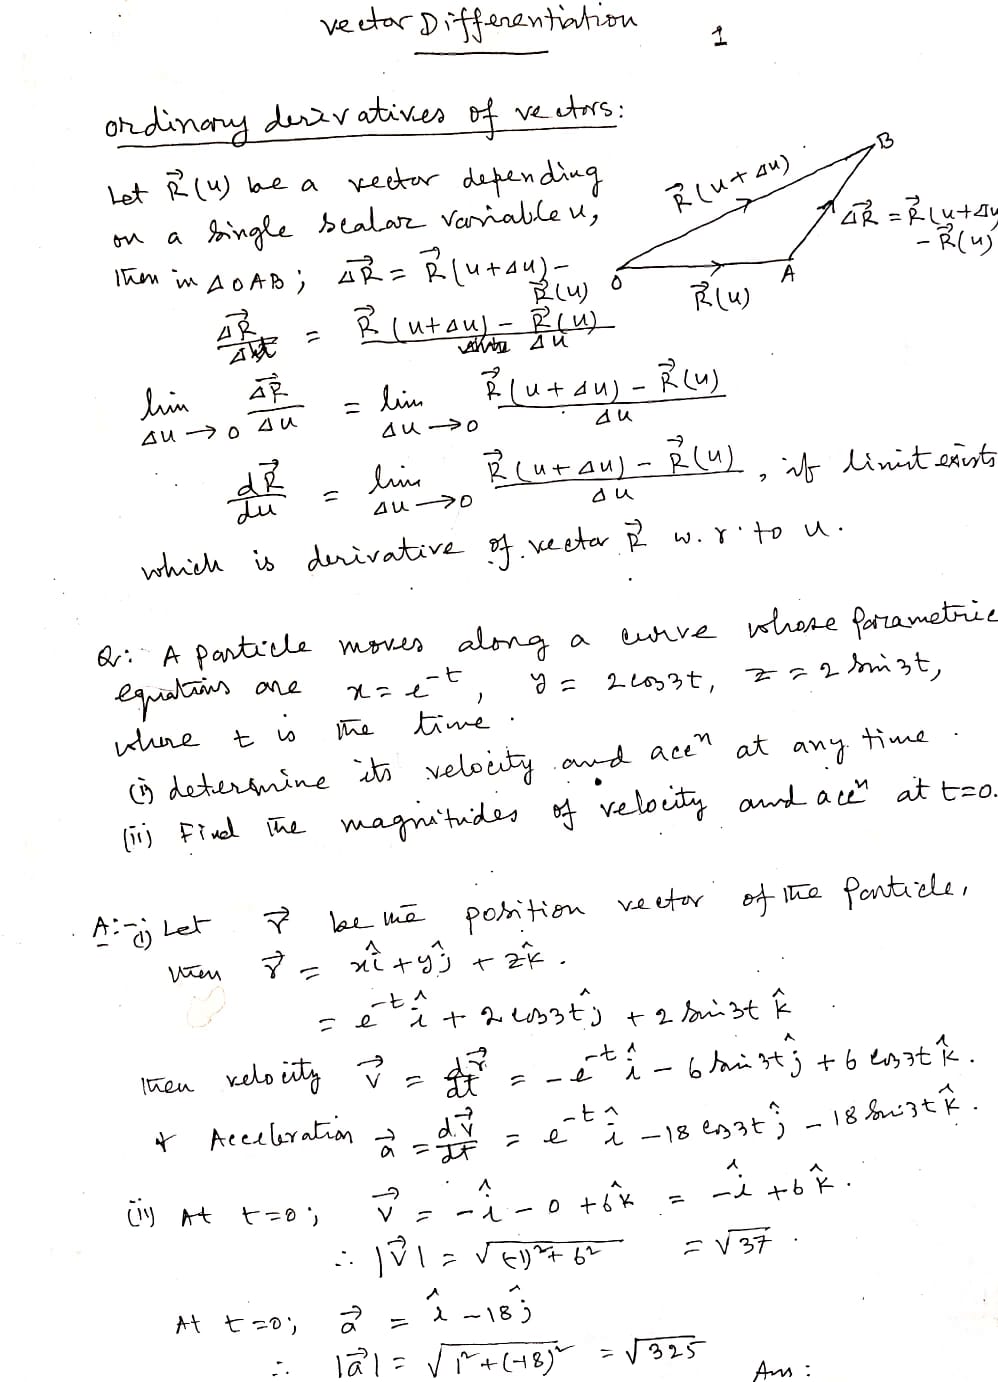 vector Differentiation
1
ordinary derivatives of vectors:
Let R⃗(u) be a vector depending
on a single scalar variable u,
Then in ΔOAB; ΔR⃗ = R⃗(u+Δu) -
R⃗(u)
R⃗(u+Δu)
B
ΔR⃗ = R⃗(u+Δu
- R⃗(u)
O
R⃗(u)
A
ΔR⃗/Δ = R⃗(u+Δu) - R⃗(u)/Δu
lim Δu→0 ΔR⃗/Δu = lim Δu→0 R⃗(u+Δu) - R⃗(u)/Δu
dR⃗/du = lim Δu→0 R⃗(u+Δu) - R⃗(u)/Δu, if limit exists
which is derivative of vector R⃗ w.r.to u.
Q: A particle moves along a curve whose parametric
equations are x = e^-t, y = 2cos3t, z = 2 sin3t,
where t is the time.
(i) determine its velocity and acc^n at any time.
(ii) Find the magnitudes of velocity and acc^n at t=0.
A:- (i) Let r⃗ be the position vector of the particle,
then r⃗ = xî + yĵ + zk̂.
= e^-t î + 2cos3t ĵ + 2 sin3t k̂
Then velocity v⃗ = dr⃗/dt = -e^-t î - 6 sin3t ĵ + 6 cos3t k̂.
& Acceleration a⃗ = dv⃗/dt = e^-t î - 18 cos3t ĵ - 18 sin3t k̂.
(ii) At t=0; v⃗ = -î - 0 + 6k̂ = -î + 6k̂.
∴ |v⃗| = √(-1)²+6² = √37.
At t=0; a⃗ = î - 18ĵ
∴ |a⃗| = √1²+(-18)² = √325
Ans: